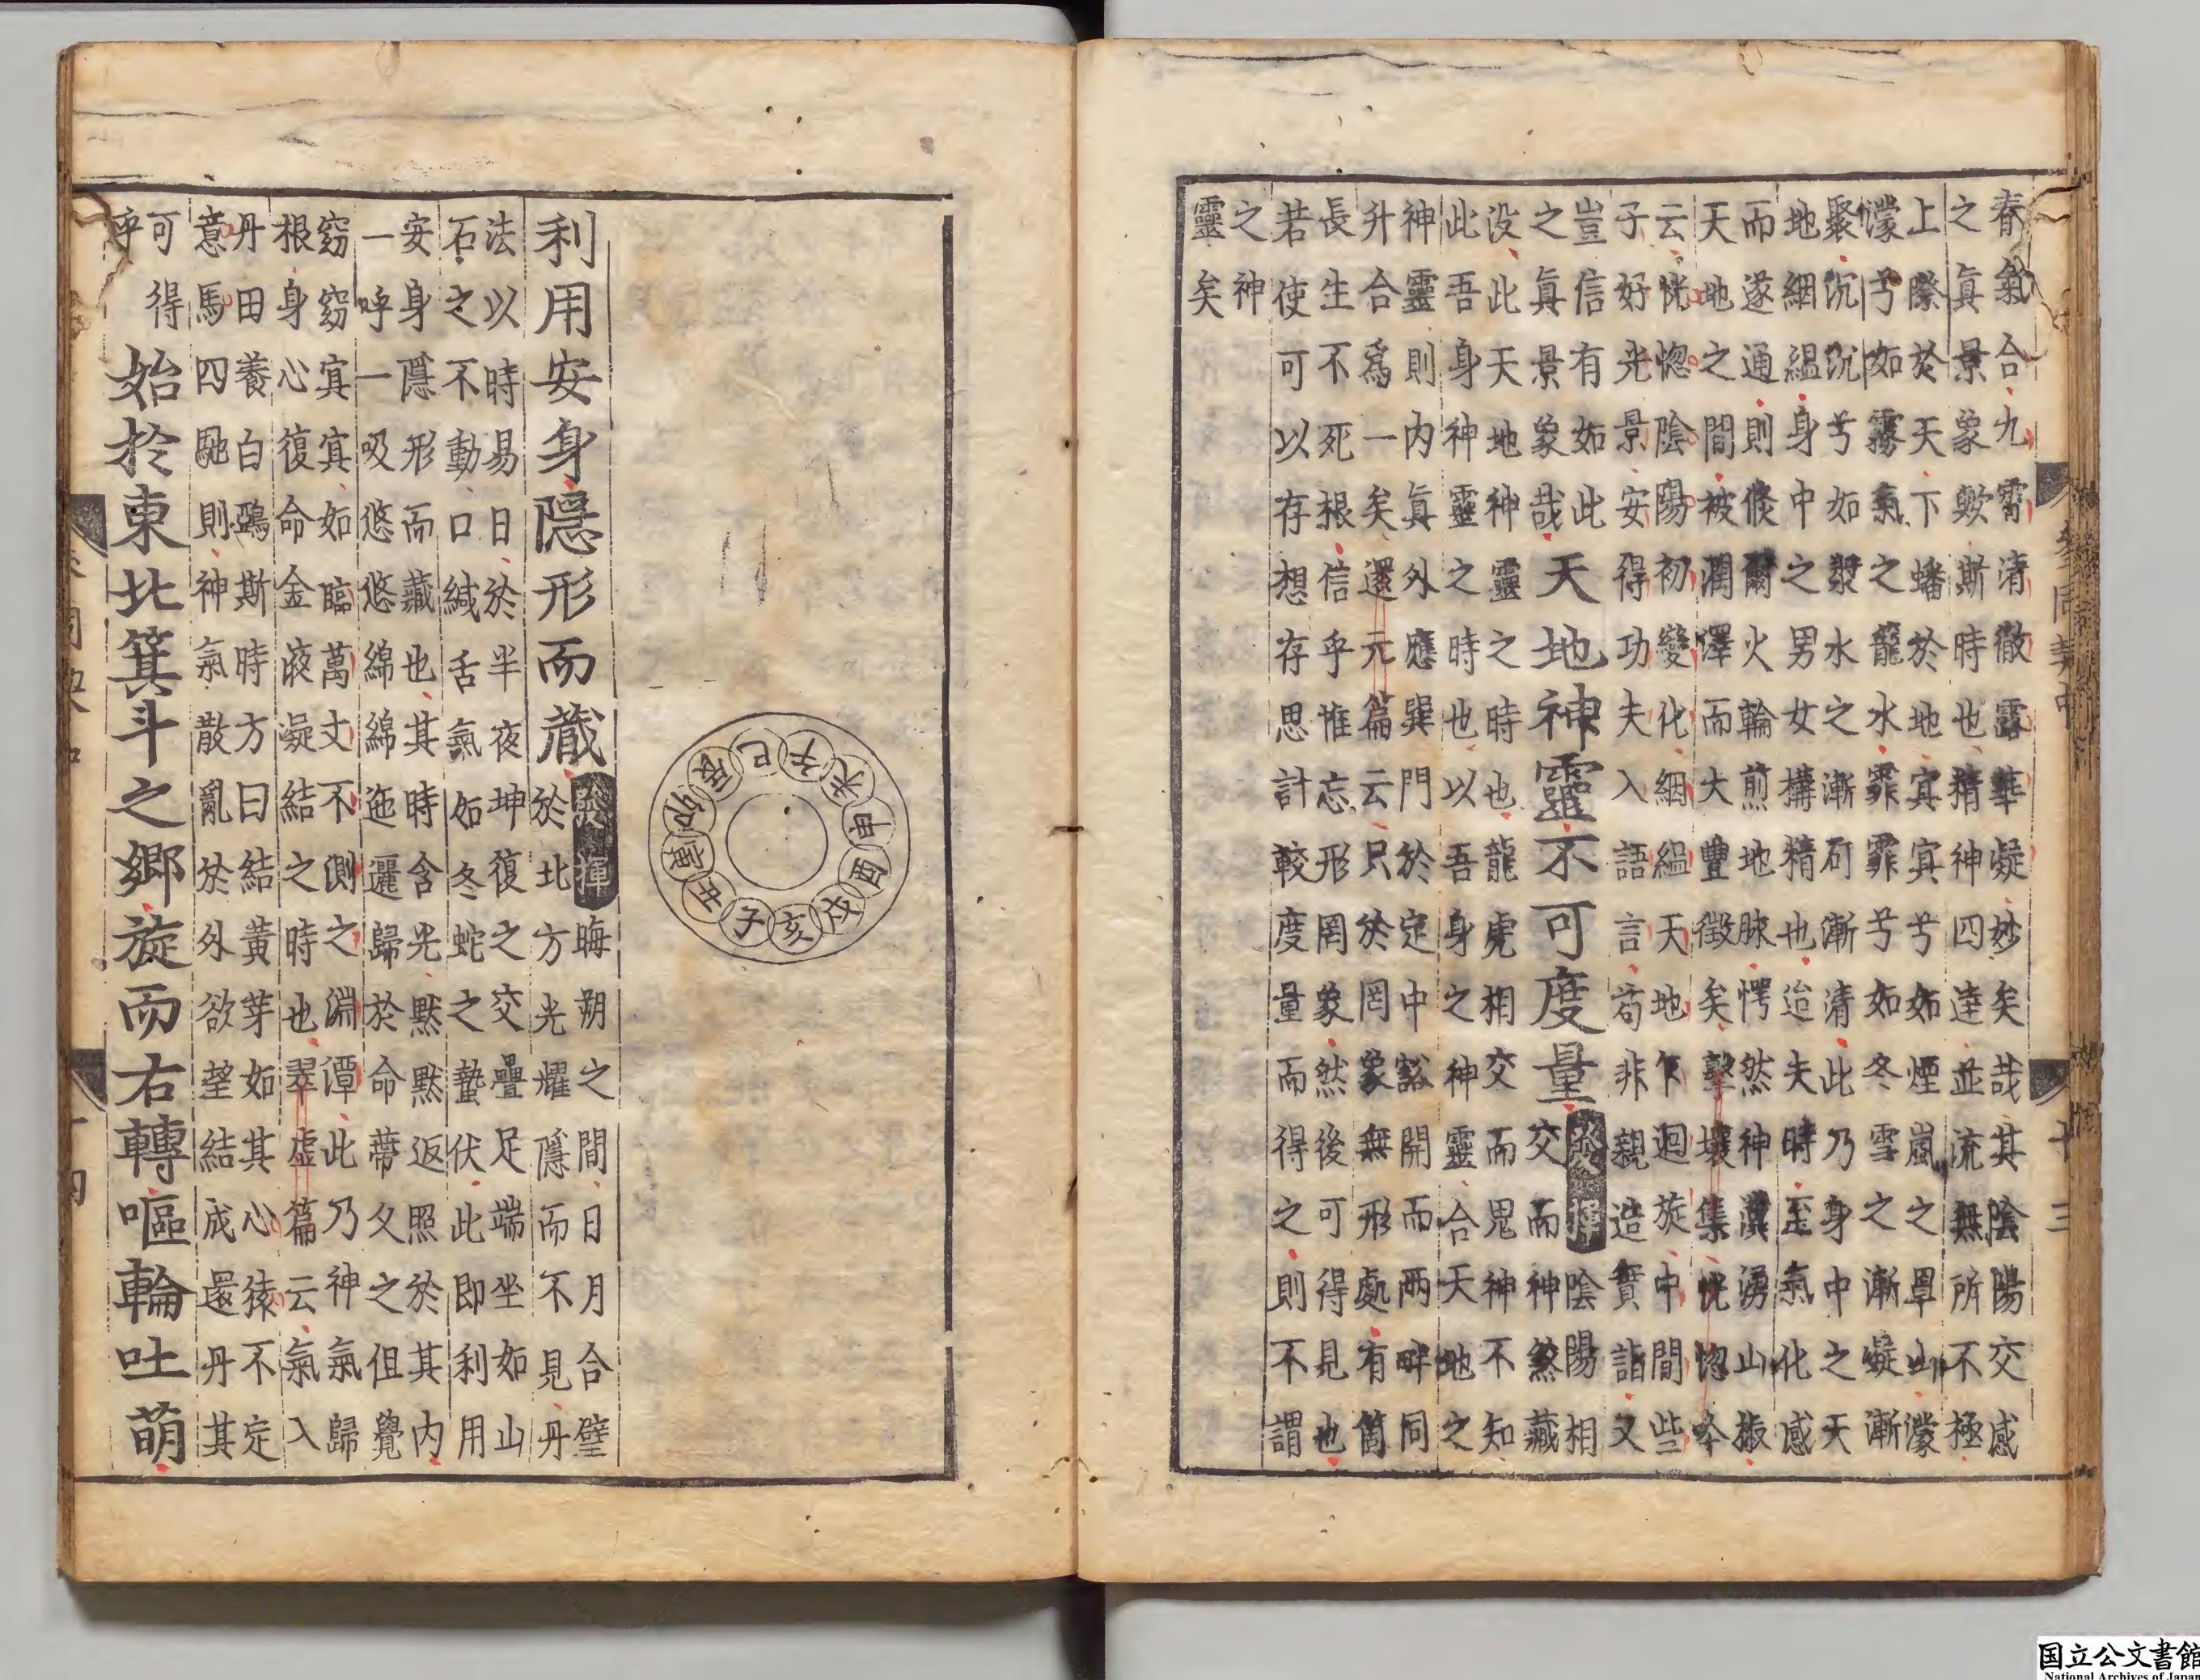 參同契中
十三
春氣合九霄清徹露華凝妙矣哉其陰陽交感
之真景象歟斯時也精神四達並流無所不極
上際於天下蟠於地冥冥兮如煙嵐之罩山濛
濛兮如霧氣之籠水霏霏兮如冬雪之漸凝漸
聚沉沉兮如漿水之漸矴漸清此乃身中之天
地絪縕身中之男女構精也迨夫時至氣化感
而遂通則倐爾火輪煎地脉愕然神瀵湧山椒
天地之間被潤澤而大豐徵矣擊壤集恍惚吟
云恍惚陰陽初變化絪縕天地乍迴旋中間些
子好光景安得功夫入語言苟非親造實詣又
豈信有如此
之眞景象哉
天地神靈不可度量
發揮陰陽相
交而神煞藏
没此天地神靈之時也龍虎相交而鬼神不知
此吾身神靈之時也以吾身之神靈合天地之
神靈則内眞外應巽門於定中豁開而兩畔同
升合爲一矣還元篇云只於罔象無形處有箇
長生不死根信乎惟忘形罔象然後可得見也
若使可以存想存思計較度量而得之則不謂
之神
靈矣
子丑寅卯辰巳午未申酉戌亥
利用安身隱形而藏
發揮晦朔之間日月合璧
於北方光耀隱而不見丹
法以時易日於半夜坤復之交疊足端坐如山
石之不動口緘舌氣如冬蛇之蟄伏此即利用
安身隱形而藏也其時含光默默返照於其内
一呼一吸悠悠綿綿迤邐歸於命蒂久之但覺
窈窈冥冥如臨萬丈不測之淵潭此乃神氣歸
根身心復命金液凝結之時也翠虚篇云氣入
丹田養白鵶斯時方曰結黃芽如其心猿不定
意馬四馳則神氣散亂於外欲望結成還丹其
可得
乎
始於東北箕斗之鄉旋而右轉嘔輪吐萌
国立公文書館
National Archives of Japan